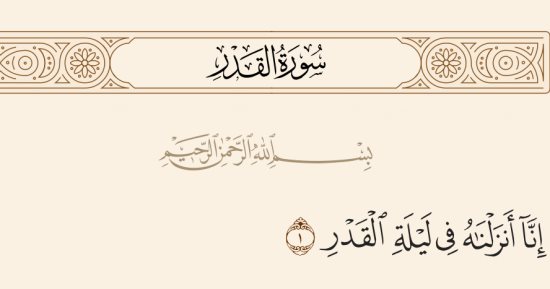 سُورَةُ القَدْرِ
بِسْمِ ٱللَّهِ ٱلرَّحْمَٰنِ ٱلرَّحِيمِ
إِنَّآ أَنزَلْنَٰهُ فِى لَيْلَةِ ٱلْقَدْرِ ١